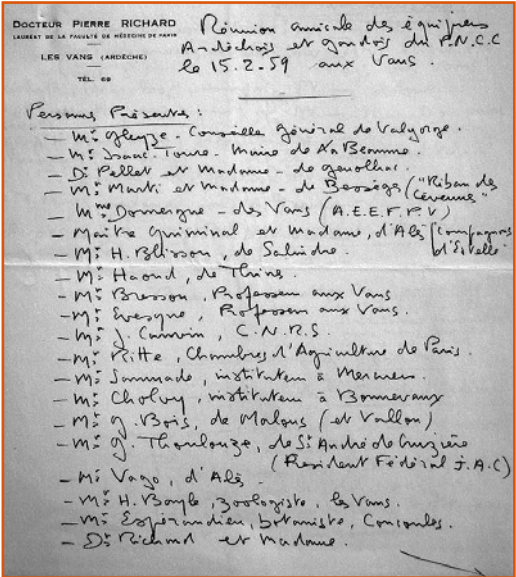 DOCTEUR PIERRE RICHARD
LAURÉAT DE LA FACULTÉ DE MÉDECINE DE PARIS
LES VANS (ARDÈCHE)
TÉL. 69
Réunion amicale des équipiers
Ardéchois et gardois du P.N.C.C
le 15.2.59 aux Vans.
Personnes Présentes :
— Mr. Gleyze. Conseiller Général de Valgorge.
— Mr. Isaac. Toure. Maire de La Beaume.
— Dr. Pellet et Madame - de Genolhac.
— Mr. Marti et Madame - de Bessèges ("Riban des Cévennes"
— Mme Domergue - des Vans (A.E.E.F.P.V)
— Maître Guiminal et Madame, d'Alès (Compagnons d'Estelle"
— Mr. H. Blisson, de Salindre.
— Mr. Haond, de Thines.
— Mr. Bresson, Professeur aux Vans
— Mr. Evesque, Professeur aux Vans.
— Mr. J. , C.N.R.S.
— Mr. Ritte, Chambres d'Agriculture de Paris.
— Mr. , instituteur à
— Mr. Cholvy, instituteur à Bonnevaux
— Mr. G. Bois, de Malons (et Vallon)
— Mr. G. Thoulouze, de St André de Cruzière
(Président Fédéral J.A.C)
— Mr. Vago, d'Alès.
— Mr. H. Bayle, zoologiste, les Vans.
— Mr. Espérandieu, botaniste, Concoules.
— Dr. Richard et Madame.